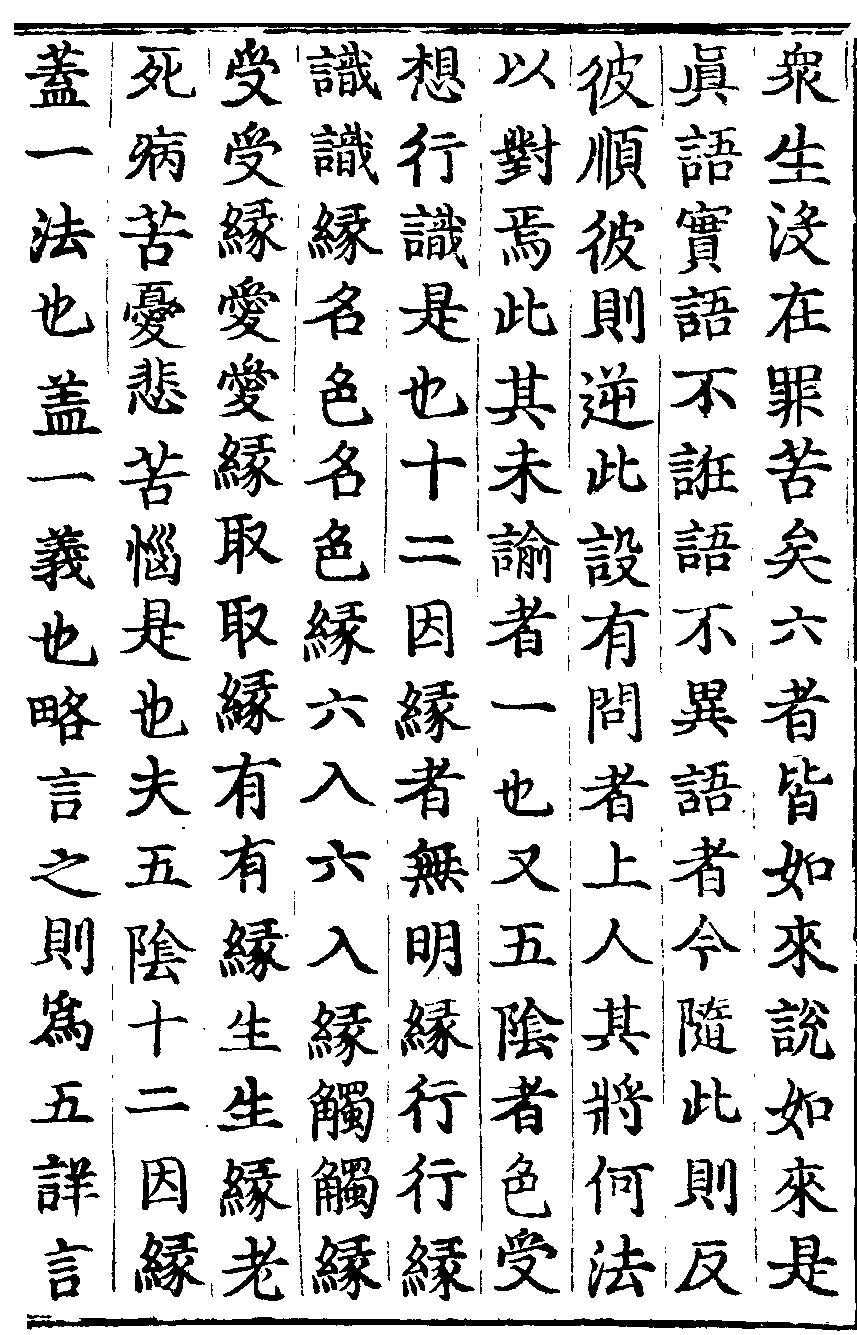 衆生没在罪苦矣六者皆如來說如來是
眞語實語不誑語不異語者今隨此則反
彼順彼則逆此設有問者上人其將何法
以對焉此其未諭者一也又五陰者色受
想行識是也十二因縁者無明縁行行縁
識識縁名色名色縁六入六入縁觸觸縁
受受縁愛愛縁取取縁有有縁生生縁老
死病苦憂悲苦惱是也夫五陰十二因縁
蓋一法也盖一義也略言之則爲五詳言